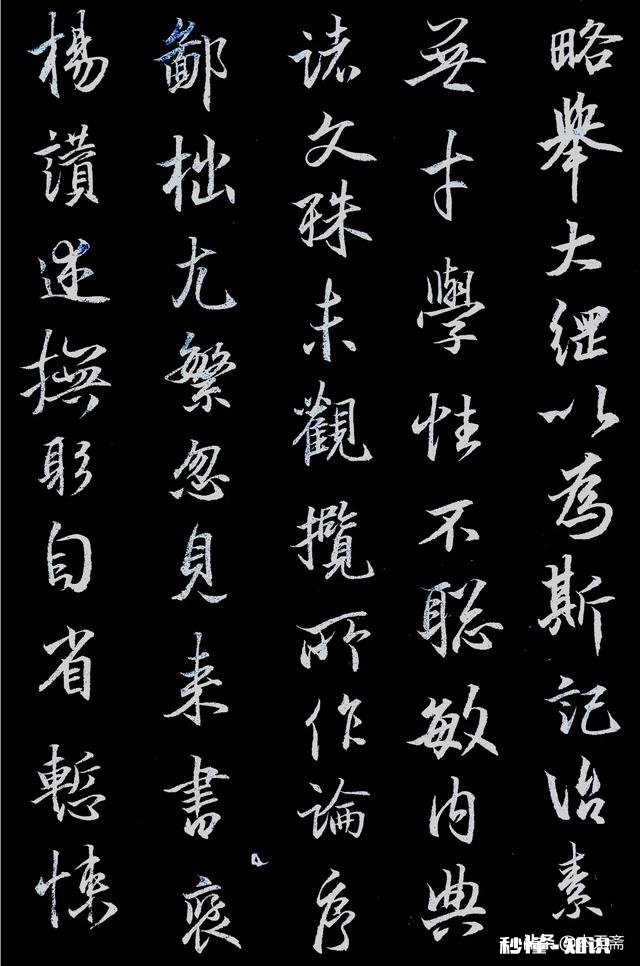 略舉大綱以為斯記治素
無才學性不聰敏內典
諸文殊未觀攬所作論序
鄙拙尤繁忽見来書褒
揚讚述撫躬自省慙悚
秒懂-知识